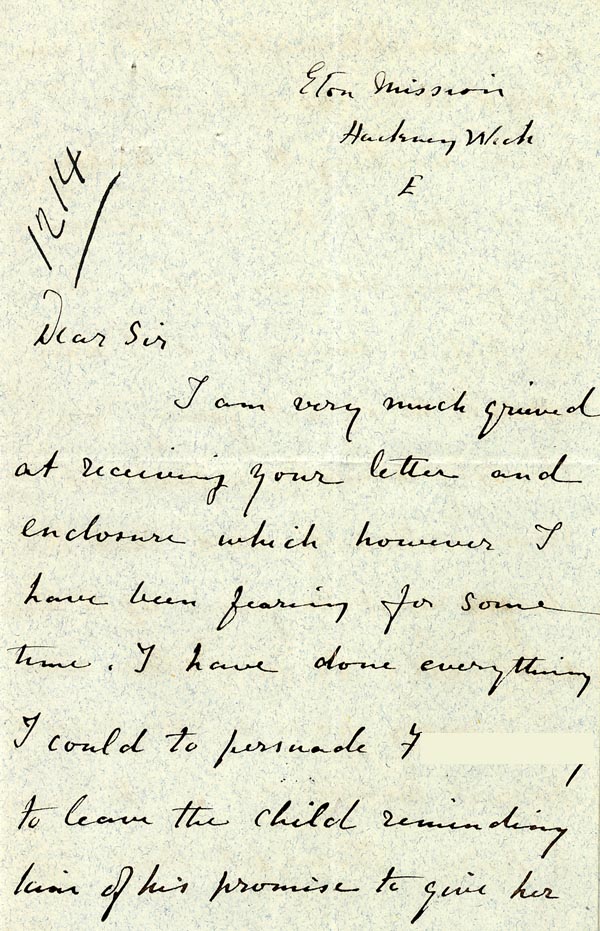 Eton Mission
Hackney Wick
E
1214
Dear Sir
I am very much grieved
at receiving your letter and
enclosure which however I
have been fearing for some
time. I have done everything
I could to persuade F
to leave the child reminding
him of his promise to give her